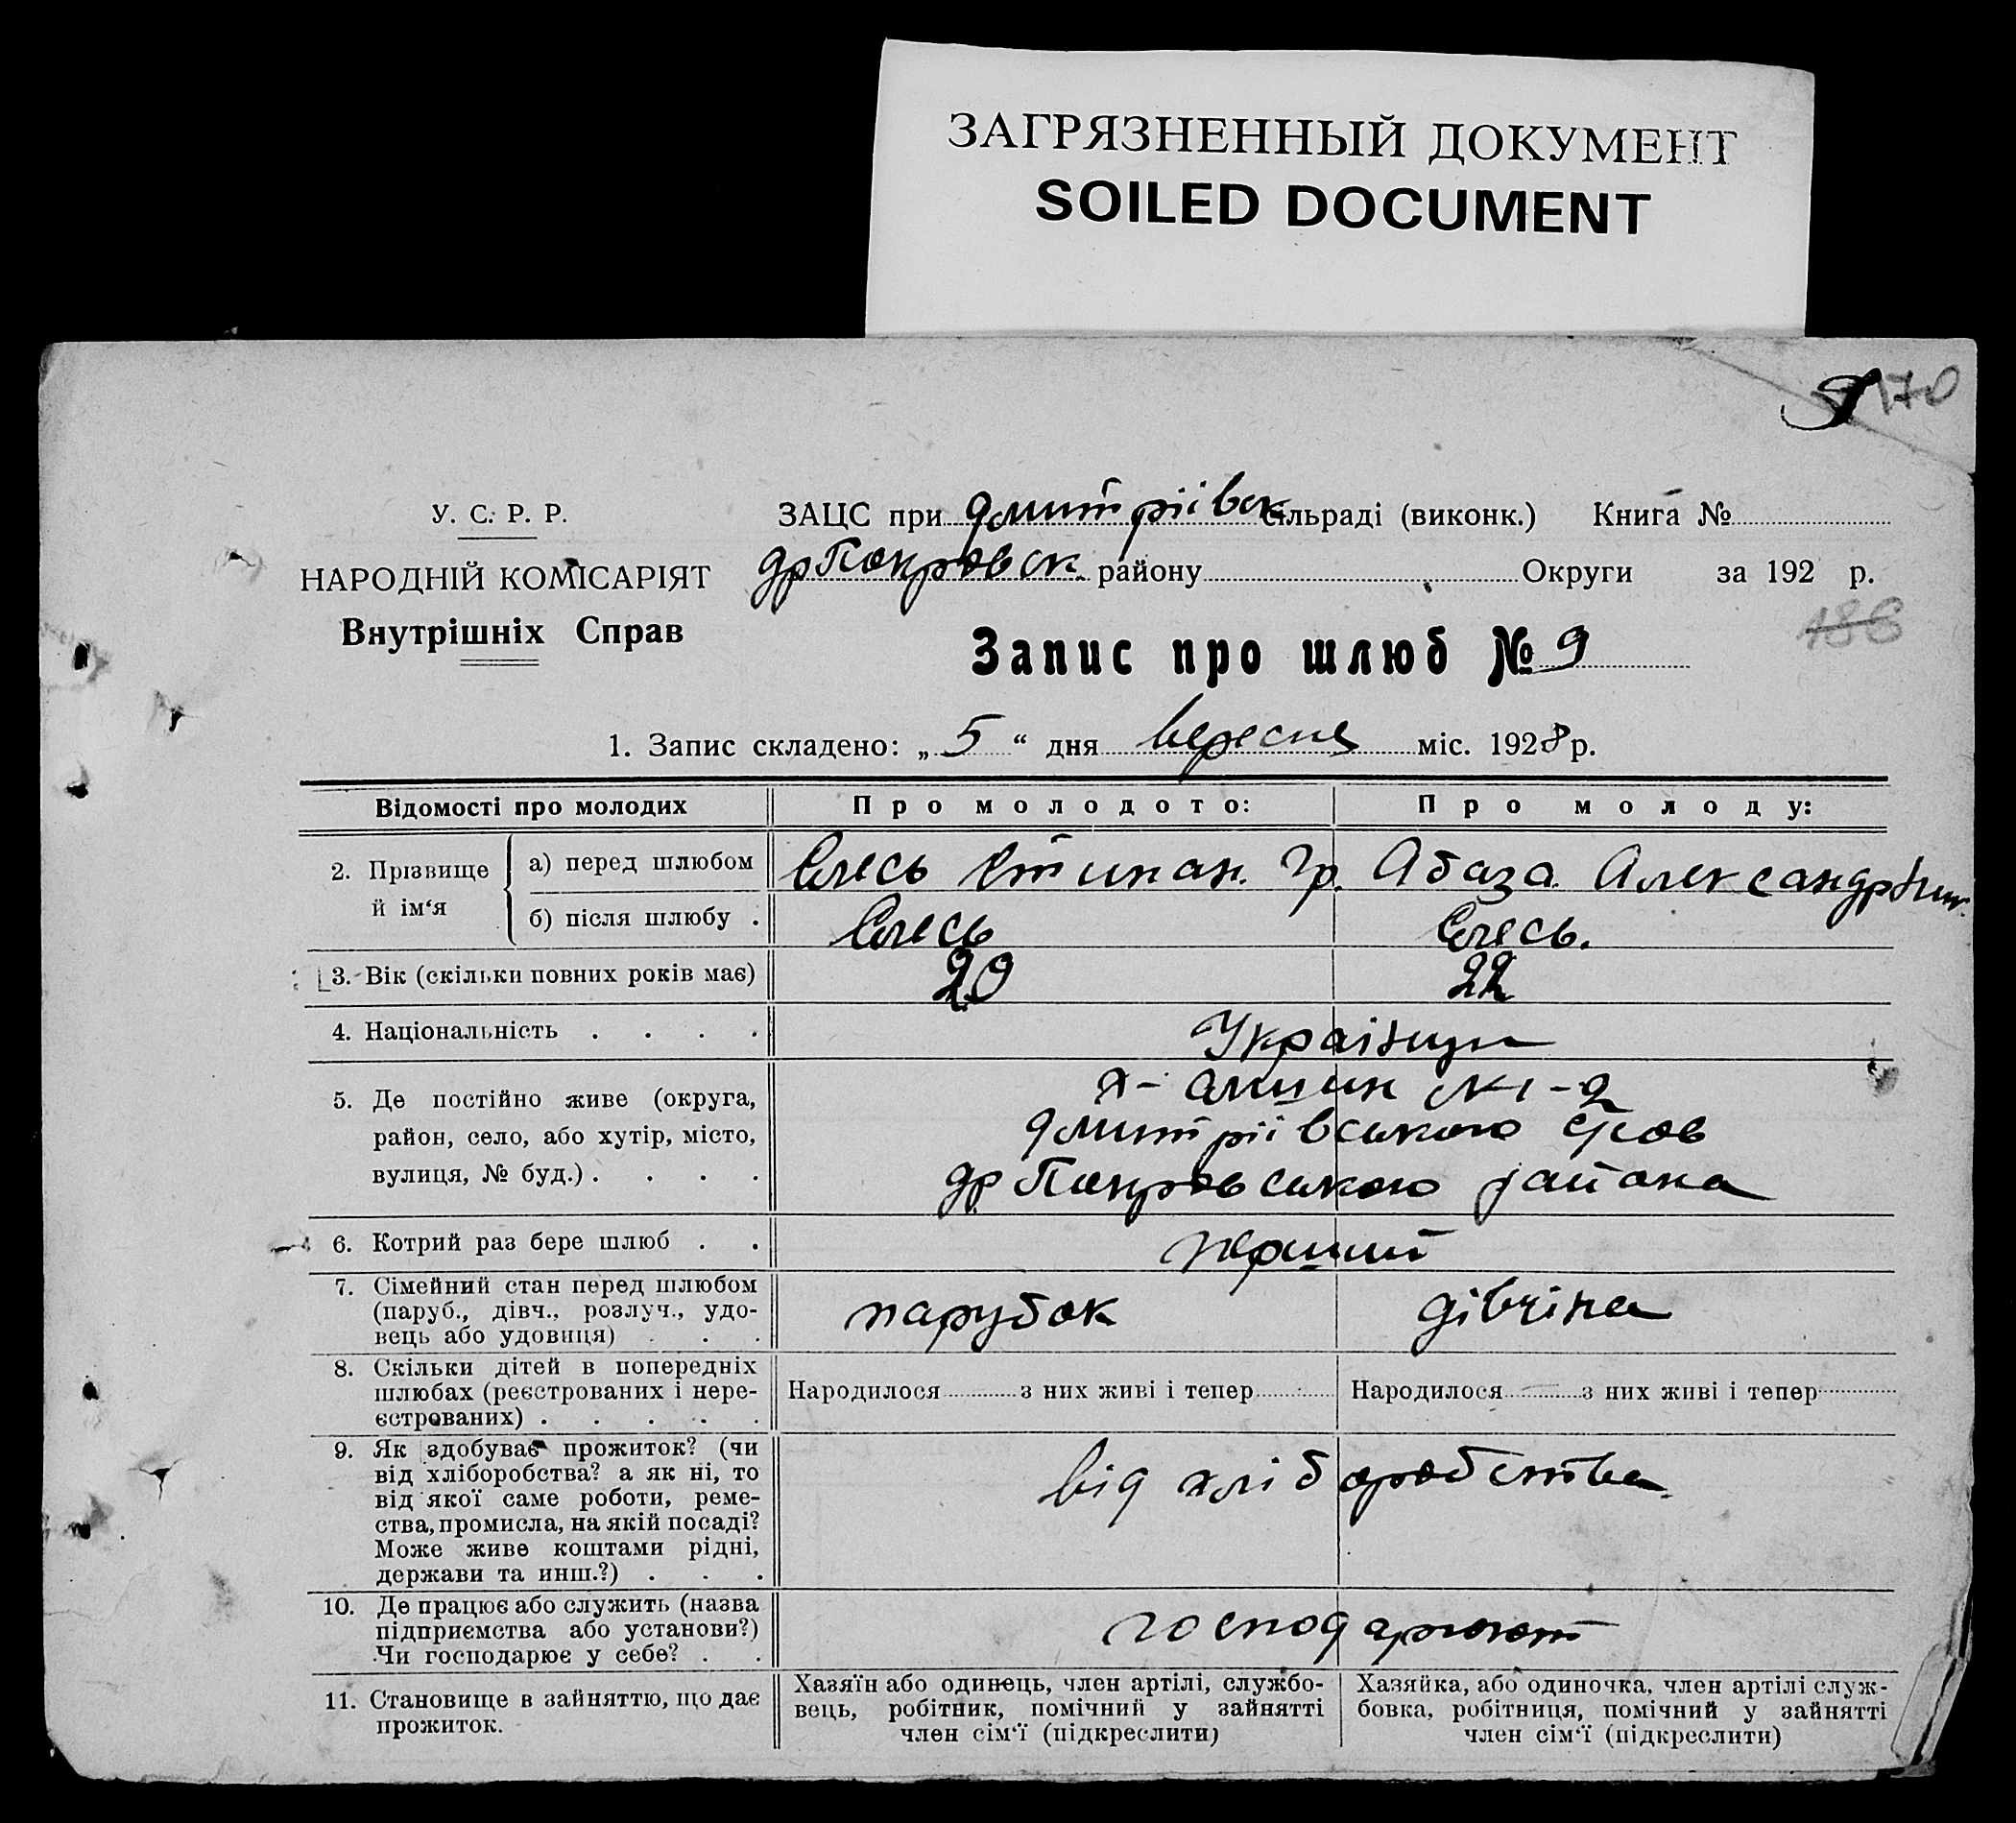 ЗАГРЯЗНЕННЫЙ ДОКУМЕНТ
SOILED DOCUMENT
170
У. С. Р. Р.
НАРОДНІЙ КОМІСАРІЯТ
Внутрішніх Справ
ЗАЦС при Дмитріівск сільраді (виконк.) Книга №
др Покровск. району Округи за 192 р.
186
Запис про шлюб № 9
1. Запис складено: „ 5 “ дня вересня міс. 1928 р.
Відомості про молодих Про молодото: Про молоду:
2. Прізвище й ім‘я
а) перед шлюбом Єлесь Стипан. Гр. Абаза Александр
б) після шлюбу . Єлесь Єлесь.
3. Вік (скільки повних років має) 20 22
4. Національність . . . . Українци
5. Де постійно живе (округа,
район, село, або хутір, місто,
вулиця, № буд.) . . . .
х- №1-2
Дмитріівськоѓо
др Покровського района
6. Котрий раз бере шлюб . . перший
7. Сімейний стан перед шлюбом
(паруб., дівч., розлуч., удо-
вець або удовиця) . . .
парубок дівчіна
8. Скільки дітей в попередніх
шлюбах (реєстрованих і нере-
єстрованих) . . . . .
Народилося з них живі і тепер Народилося з них живі і тепер
9. Як здобуває прожиток? (чи
від хліборобства? а як ні, то
від якої саме роботи, реме-
ства, промисла, на якій посаді?
Може живе коштами рідні,
держави та инш.?) . . .
від хліборобства
10. Де працює або служить (назва
підприємства або установи?)
Чи господарює у себе? . .
господарюют
11. Становище в зайняттю, що дає
прожиток.
Хазяїн або одинець, член артілі, службо-
вець, робітник, помічний у зайнятті
член сім‘ї (підкреслити)
Хазяйка, або одиночка, член артілі служ-
бовка, робітниця, помічний у зайнятті
член сім‘ї (підкреслити)